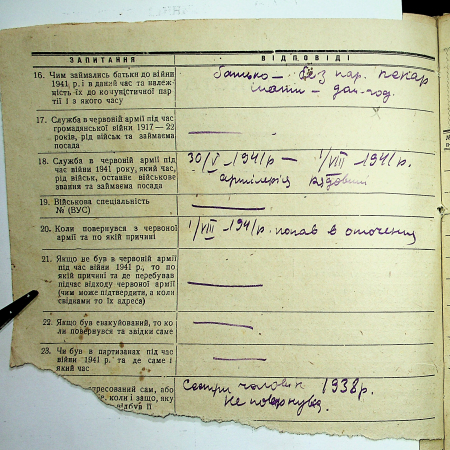 ЗАПИТАННЯ ВІДПОВІДІ
16. Чим займались батьки до війни
1941 р. і в даний час та належ-
ність їх до комуністичної пар-
тії і з якого часу
батько — без пар. пекар
мати — дом-год.
17. Служба в червоній армії під час
громадянської війни 1917—22
років, рід військ та займаєма
посада
18. Служба в червоній армії під
час війни 1941 року, який час,
рід військ, останнє військове
звання та займаєма посада
30/V -1941р — 1/VIII -1941р.
артилерія рядовий
19. Військова спеціальність
№ (ВУС)
20. Коли повернувся з червоної
армії та по якій причині
1/VIII -1941р. попав в оточення
21. Якщо не був в червоній армії
під час війни 1941 р., то по
якій причині та де перебував
підчас відходу червоної армії
(чим може підтвердити, а коли
свідками то їх адреса)
22. Якщо був евакуйований, то ко-
ли повернувся та звідки саме
23. Чи був в партизанах під час
війни 1941 р. та де саме і
який час
ресований сам, або
коли і защо, як
відбув її
Сестри чоловік 1938р.
Не повернувся.